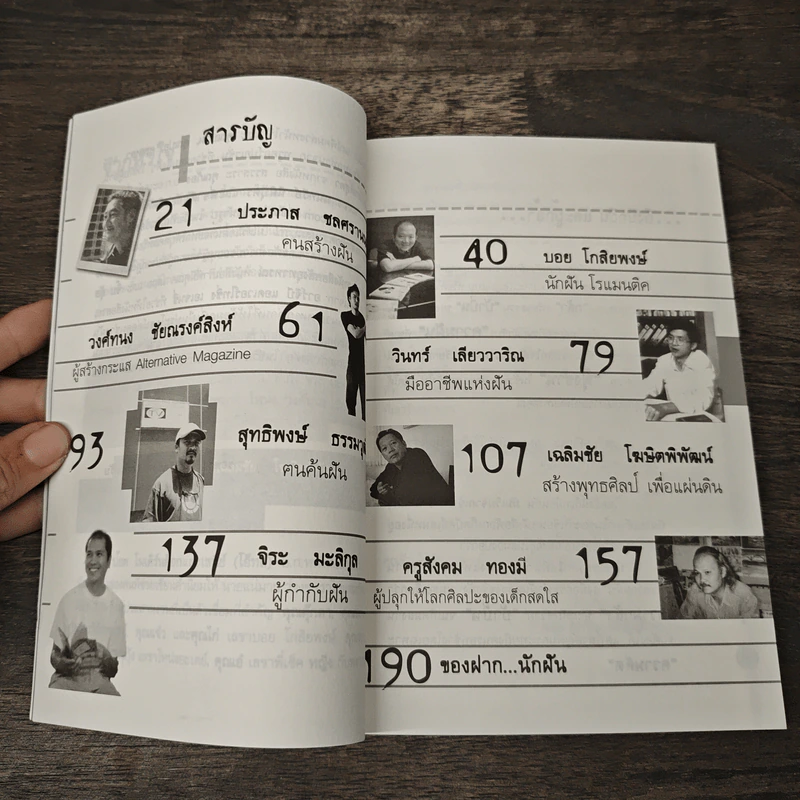 สารบัญ
21 ประภาส
คนสร้างฝัน
วงศ์ทนง ชัยณรงค์สิงห์ 61
ผู้สร้างกระแส Alternative Magazine
93 สุทธิพงษ์
ฅนค้นฝัน
137 จิระ มะลิกุล
ผู้กำกับฝัน
40 บอย โกสิยพงษ์
นักฝัน โรแมนติค
วินทร์ เลียววาริณ 79
มืออาชีพแห่งฝัน
107 เฉลิมชัย โฆษิตพิพัฒน์
สร้างพุทธศิลป์ เพื่อแผ่นดิน
ครูสังคม ทองมี 157
ผู้ปลุกให้โลกศิลปะของเด็กสดใส
190 ของฝาก...นักฝัน